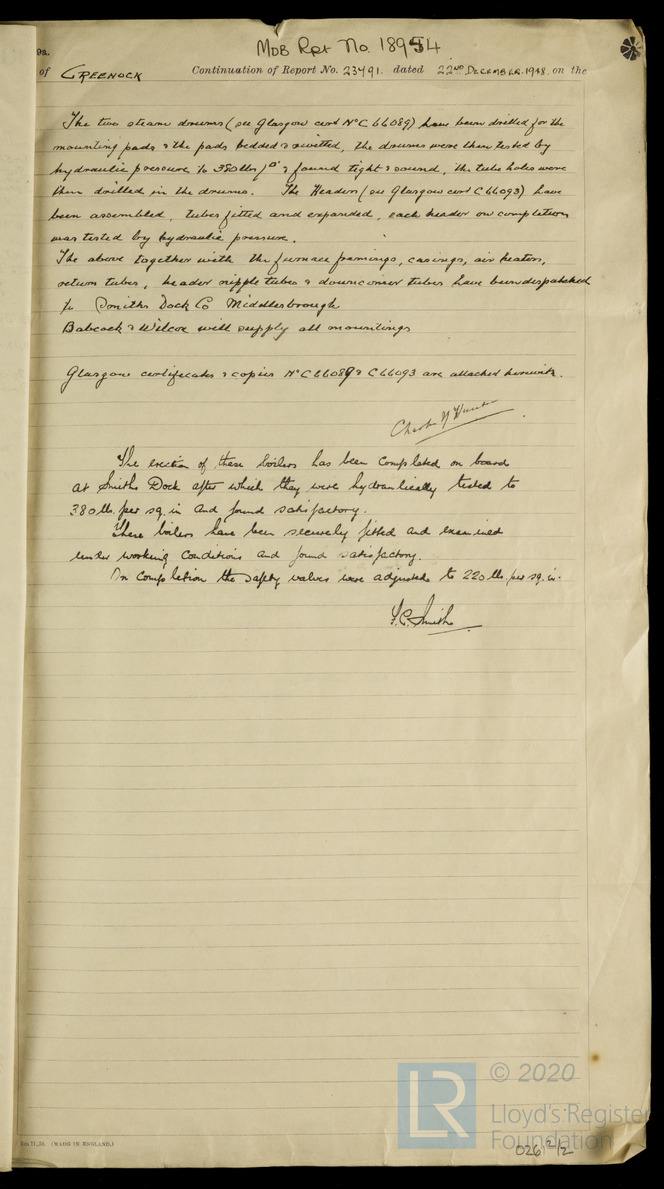 MDB Rpt No. 18954
9a.
of GREENOCK Continuation of Report No. 23491. dated 22ND DECEMBER. 1948. on the
The two steam drums (see Glasgow cert No C66089) have been drilled for the
mounting pads & the pads bedded & rivetted, the drums were then tested by
hydraulic pressure to 380 lbs/□" & found tight & sound, the tube holes were
then drilled in the drums. The Headers (see Glasgow cert C66093) have
been assembled, tubes fitted and expanded, each header on completion
was tested by hydraulic pressure.
The above together with the furnace framings, casings, air heaters,
return tubes, header nipple tubes & downcomer tubes have been despatched
to Smiths Dock Co Middlesbrough
Babcock & Wilcox will supply all mountings
Glasgow certificates & copies No C66089 & C66093 are attached herewith.
The erection of these boilers has been completed on board
at Smiths Dock after which they were hydraulically tested to
380 lb. per sq. in and found satisfactory.
These boilers have been securely fitted and examined
under working conditions and found satisfactory.
On completion the safety valves were adjusted to 220 lb. per sq. in.
Smith
(MADE IN ENGLAND.)
LR
© 2020
Lloyd's Register
Foundation
0261 2/2